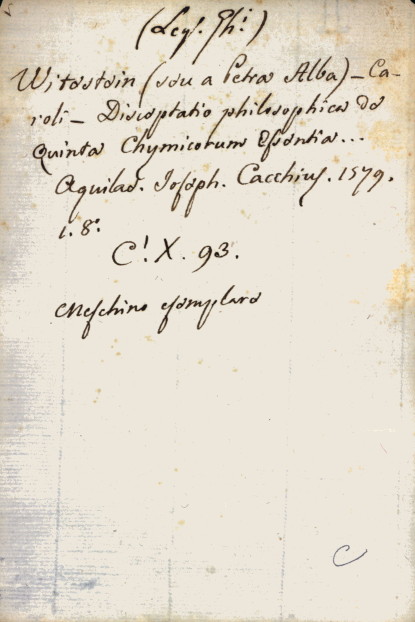 (Leg. Ghi.)
Witestein (seu a Petra Alba) – Ca-
roli – Disceptatio philosophica de
Quinta Chymicorum Essentia...
Aquilae. Joseph. Cacchius. 1579.
i. 8°
C! X. 93.
Meschino esemplare
C